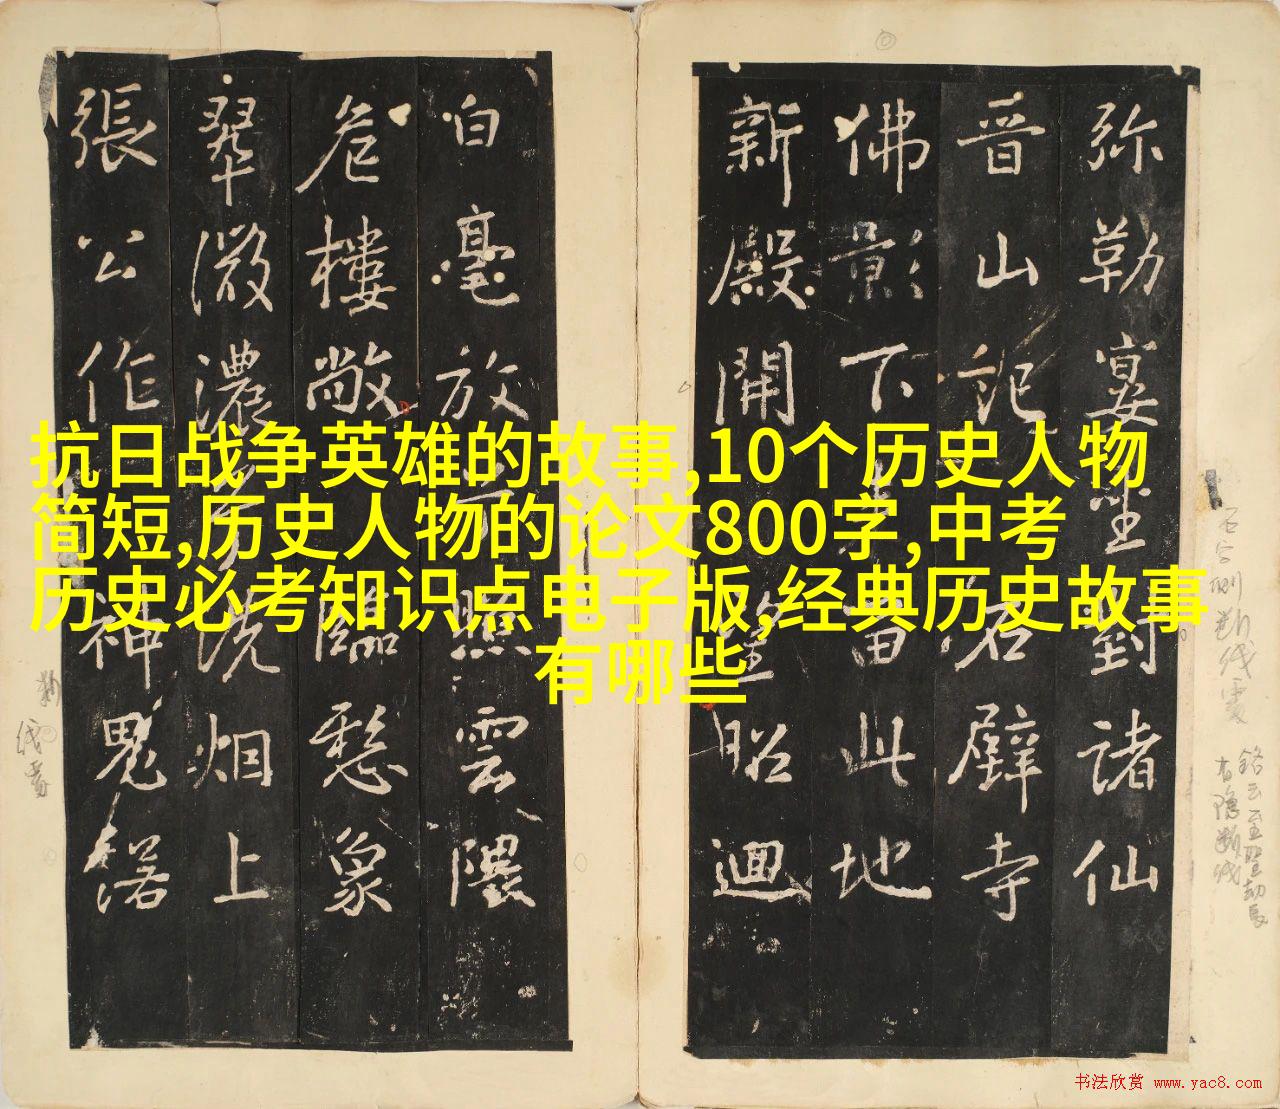 弥勒宴坐對諸仙
晋山記石壁寺
佛影下留此地
新殿開昭迴
白毫放照雲隈
危樓敞臨愁象
翠微濃洗烟上
張公作神鬼
抗日战争英雄的故事,10个历史人物
简短,历史人物的论文800字,中考
历史必考知识点电子版,经典历史故事
有哪些
书法欣赏 www.yac8.com